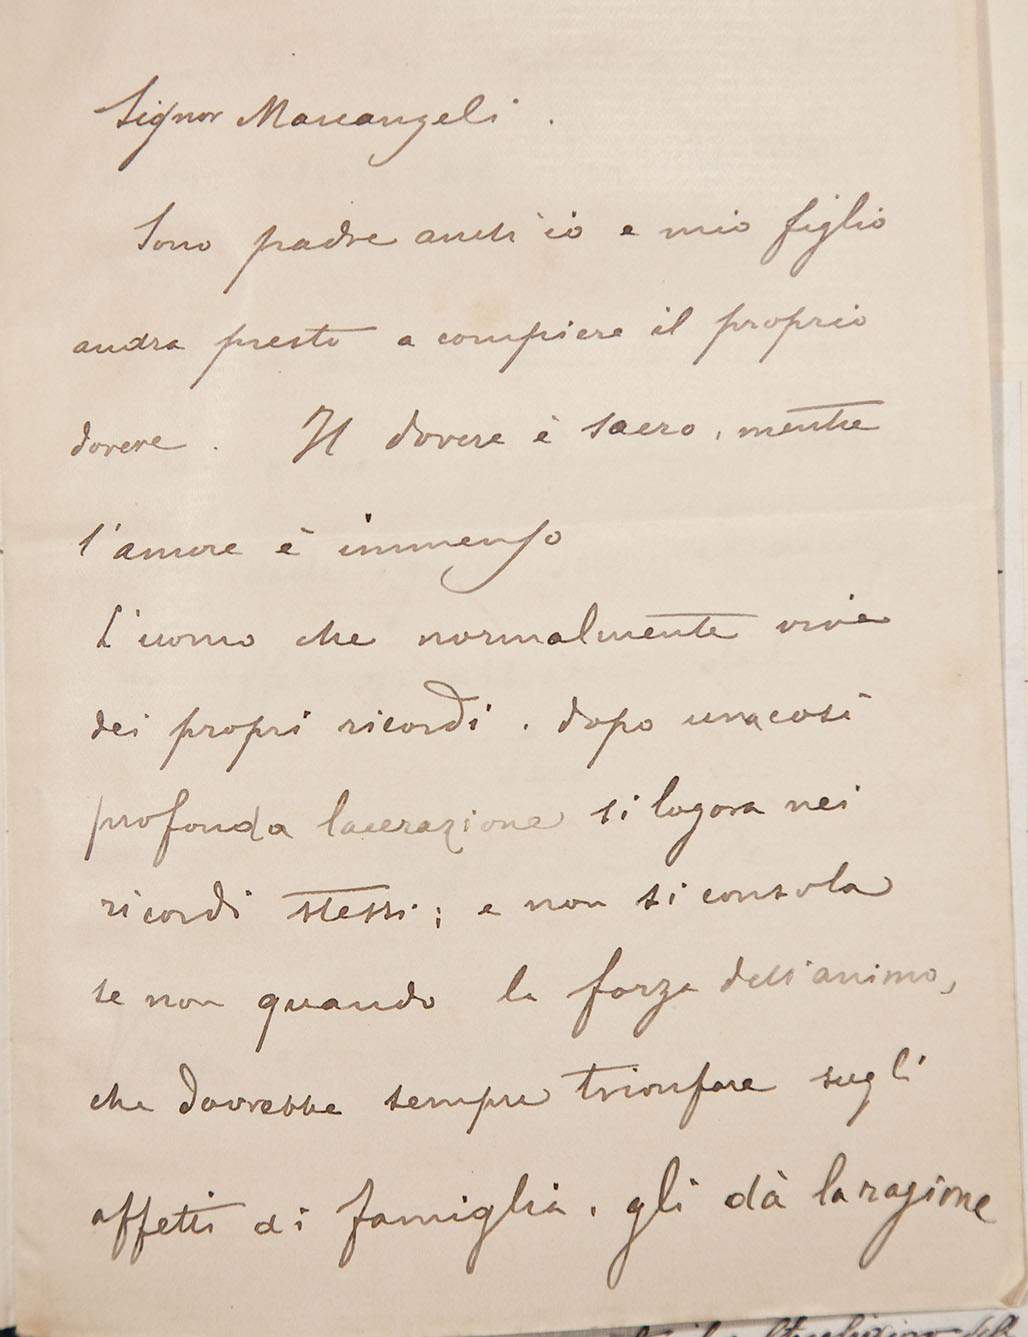 Signor Marcangeli.
Sono padre anch'io e mio figlio
andra presto a compiere il proprio
dovere. Il dovere è sacro, mentre
l'amore è immenso
L'uomo che normalmente vive
dei propri ricordi, dopo una così
profonda lacerazione si logora nei
ricordi stessi; e non si consola
se non quando la forza dell'animo,
che dovrebbe sempre trionfare sugli
affetti di famiglia, gli dà la ragione